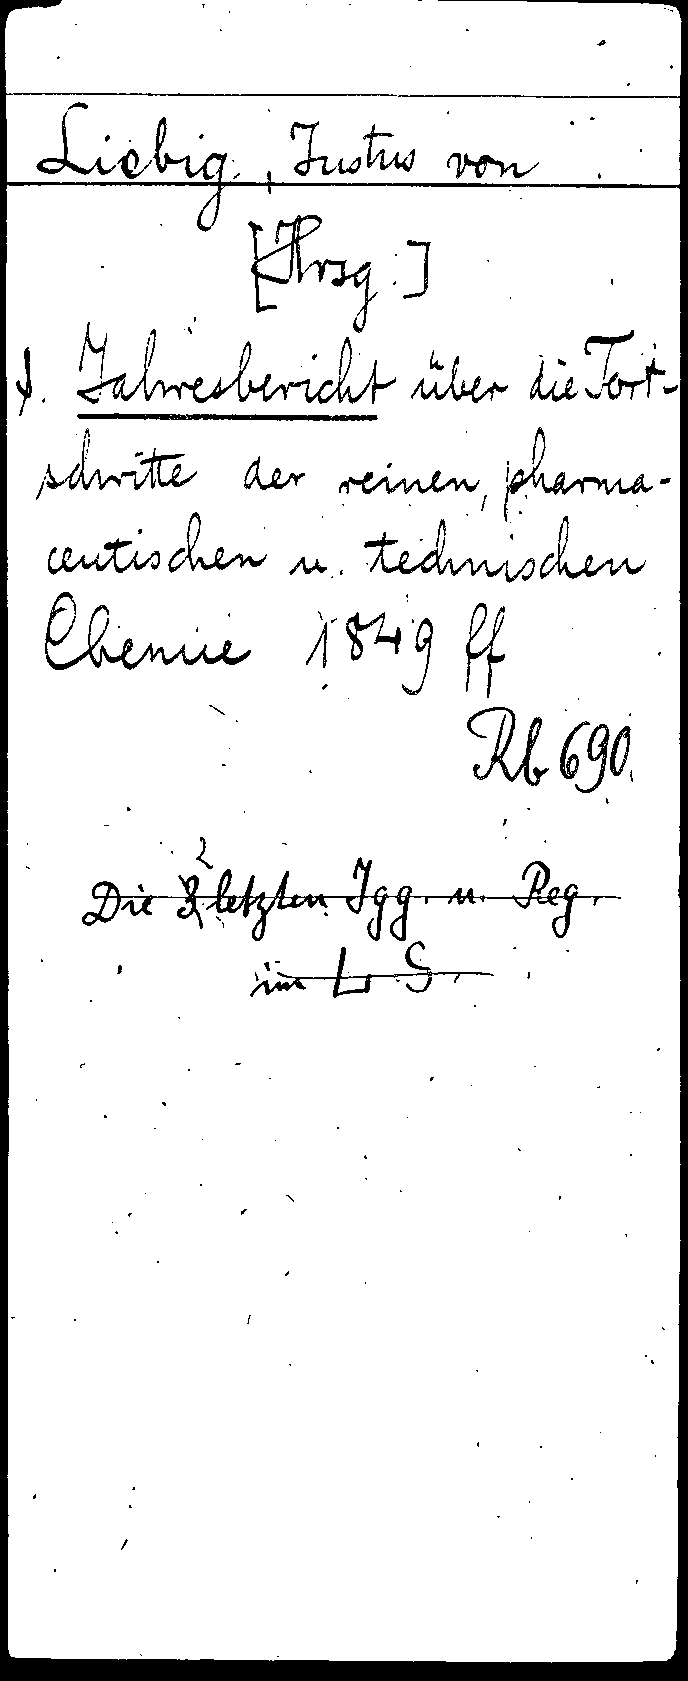 Liebig, Justus von
[Hrsg.]
s. Jahresbericht über die Fort-
schritte der reinen, pharma-
ceutischen u. technischen
Chemie 1849 ff
Rb 690.
2
Die 3 letzten Jgg. u. Reg.
im L S.